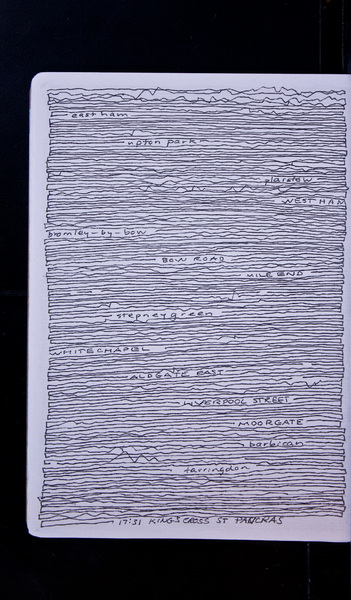 east ham
upton park
plaistow
WEST HAM
bromley-by-bow
BOW ROAD
MILE END
stepney green
WHITECHAPEL
ALDGATE EAST
LIVERPOOL STREET
MOORGATE
barbican
farringdon
17:31 KINGS CROSS ST PANCRAS